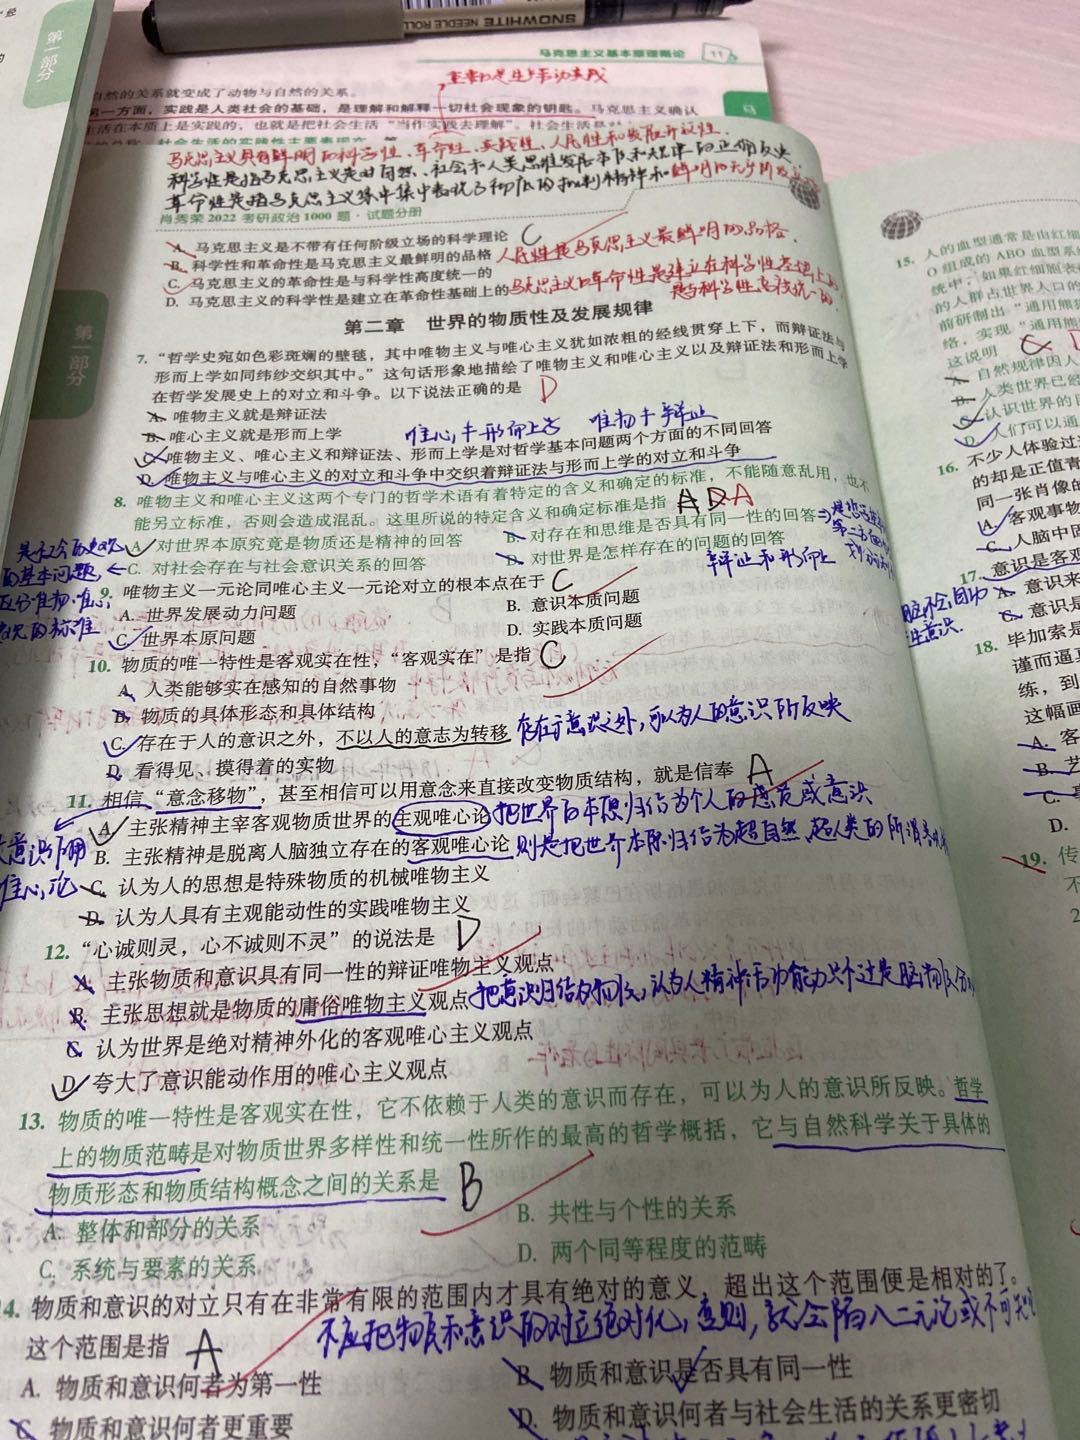 SNOWHITE NEEDLE ROLL
第一部分
马克思主义基本原理概论 11
自然的关系就变成了动物与自然的关系。
另一方面，实践是人类社会的基础，是理解和解释一切社会现象的钥匙。马克思主义确认
生活在本质上是实践的，也就是把社会生活“当作实践去理解”。
马
马克思主义具有鲜明的科学性、革命性、实践性、人民性和发展开放性。
科学性是指马克思主义是对自然、社会和人类思维发展本质和规律的正确反映
革命性是指马克思主义集中表现了彻底的批判精神和鲜明的
肖秀荣2022考研政治1000题·试题分册
A. 马克思主义是不带有任何阶级立场的科学理论 C
B. 科学性和革命性是马克思主义最鲜明的品格 人民性是马克思主义最鲜明的品格.
C. 马克思主义的革命性是与科学性高度统一的
D. 马克思主义的科学性是建立在革命性基础上的 马克思主义的革命性是建立在科学性基础上的
是与科学性高度统一的
第二章 世界的物质性及发展规律
7. “哲学史宛如色彩斑斓的壁毯，其中唯物主义与唯心主义犹如浓粗的经线贯穿上下，而辩证法与
形而上学如同纬纱交织其中。”这句话形象地描绘了唯物主义和唯心主义以及辩证法和形而上学
在哲学发展史上的对立和斗争。以下说法正确的是 D
A. 唯物主义就是辩证法
B. 唯心主义就是形而上学 唯心≠形而上学 唯物≠辩证
C. 唯物主义、唯心主义和辩证法、形而上学是对哲学基本问题两个方面的不同回答
D. 唯物主义与唯心主义的对立和斗争中交织着辩证法与形而上学的对立和斗争
8. 唯物主义和唯心主义这两个专门的哲学术语有着特定的含义和确定的标准，不能随意乱用，也不
能另立标准，否则会造成混乱。这里所说的特定含义和确定标准是指 A
A. 对世界本原究竟是物质还是精神的回答 B. 对存在和思维是否具有同一性的回答
C. 对社会存在与社会意识关系的回答 D. 对世界是怎样存在的问题的回答
辩证和形而上
的基本问题,
9. 唯物主义一元论同唯心主义一元论对立的根本点在于 C
A. 世界发展动力问题 B. 意识本质问题
C. 世界本原问题 D. 实践本质问题
10. 物质的唯一特性是客观实在性，“客观实在”是指 C
A. 人类能够实在感知的自然事物
B. 物质的具体形态和具体结构
C. 存在于人的意识之外，不以人的意志为转移 存在于意识之外，可以为人的意识所反映
D. 看得见、摸得着的实物
11. 相信“意念移物”，甚至相信可以用意念来直接改变物质结构，就是信奉 A
A. 主张精神主宰客观物质世界的主观唯心论 把世界的本原归结为个人的感觉或意识
B. 主张精神是脱离人脑独立存在的客观唯心论 则是把世界本原归结为超自然、超人类的所谓
C. 认为人的思想是特殊物质的机械唯物主义
D. 认为人具有主观能动性的实践唯物主义
12. “心诚则灵，心不诚则不灵”的说法是 D
A. 主张物质和意识具有同一性的辩证唯物主义观点
B. 主张思想就是物质的庸俗唯物主义观点 把意识归结为物质，认为人精神活动能力只不过是脑
C. 认为世界是绝对精神外化的客观唯心主义观点
D. 夸大了意识能动作用的唯心主义观点
13. 物质的唯一特性是客观实在性，它不依赖于人类的意识而存在，可以为人的意识所反映。哲学
上的物质范畴是对物质世界多样性和统一性所作的最高的哲学概括，它与自然科学关于具体的
物质形态和物质结构概念之间的关系是 B
A. 整体和部分的关系 B. 共性与个性的关系
C. 系统与要素的关系 D. 两个同等程度的范畴
14. 物质和意识的对立只有在非常有限的范围内才具有绝对的意义，超出这个范围便是相对的了。
这个范围是指 A 不应把物质和意识的对立绝对化，否则，就会陷入二元论或不可知论
A. 物质和意识何者为第一性 B. 物质和意识是否具有同一性
C. 物质和意识何者更重要 D. 物质和意识何者与社会生活的关系更密切
15. 人的血型通常是由红细
O组成的ABO血型系
统中，如果红细胞表
的人群占世界人口的
前研制出“通用熊
络，实现“通用
这说明
A. 自然规律因人
B. 人类世界已经
C. 认识世界的目
D. 人们可以通
16. 不少人体验过
的却是正值青
同一张肖像的
A. 客观事物
C. 人脑中
17. 意识是客
A. 意识来
C. 意识是
18. 毕加索是
谨而逼真
练，到
这幅画
A. 客
B. 艺
C.
D.
19. 传